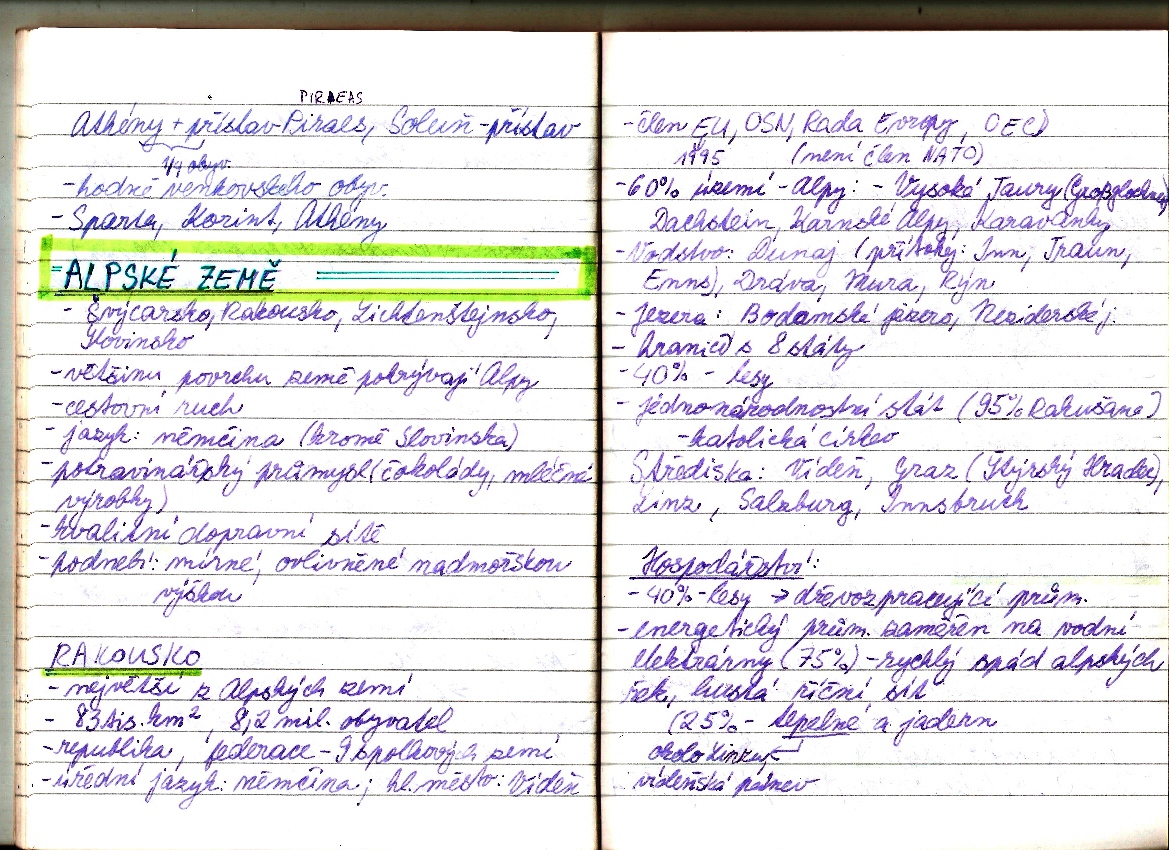 PIRAEAS
Athény + přístav Piraes, Soluň - přístav
1/4 obyv.
- hodně venkovského obyv.
- Sparta, Korint, Athény
ALPSKÉ ZEMĚ
- Švýcarsko, Rakousko, Lichtenštejnsko,
Slovinsko
- většinu povrchu země pokrývají Alpy
- cestovní ruch
- jazyk: němčina (kromě Slovinska)
- potravinářský průmysl (čokolády, mléčné
výrobky)
- kvalitní dopravní sítě
- podnebí: mírné, ovlivněné nadmořskou
výškou
RAKOUSKO
- největší z Alpských zemí
- 83 tis. km², 8,2 mil. obyvatel
- republika, federace - 9 spolkových zemí
- úřední jazyk: němčina; hl. město: Vídeň
- člen EU, OSN, Rada Evropy, OECD
1995 (není člen NATO)
- 60% území - Alpy: - Vysoké Taury (Großglockner)
Dachstein, Karnské Alpy, Karavanky
- Vodstvo: Dunaj (přítoky: Inn, Traun,
Enns), Dráva, Mura, Rýn
- Jezera: Bodamské jezero, Neziderské j.
- hranicí s 8 státy
- 40% - lesy
- jednonárodnostní stát (95% Rakušané)
- katolická církev
Střediska: Vídeň, Graz (Štýrský Hradec),
Linz, Salzburg, Innsbruck
Hospodářství:
- 40% - lesy → dřevozpracující prům.
- energetický prům. zaměřen na vodní
elektrárny (75%) - rychlý spád alpských
řek, hustá říční síť
(25% - tepelné a jadern
okolo Lince
vídeňská pánev